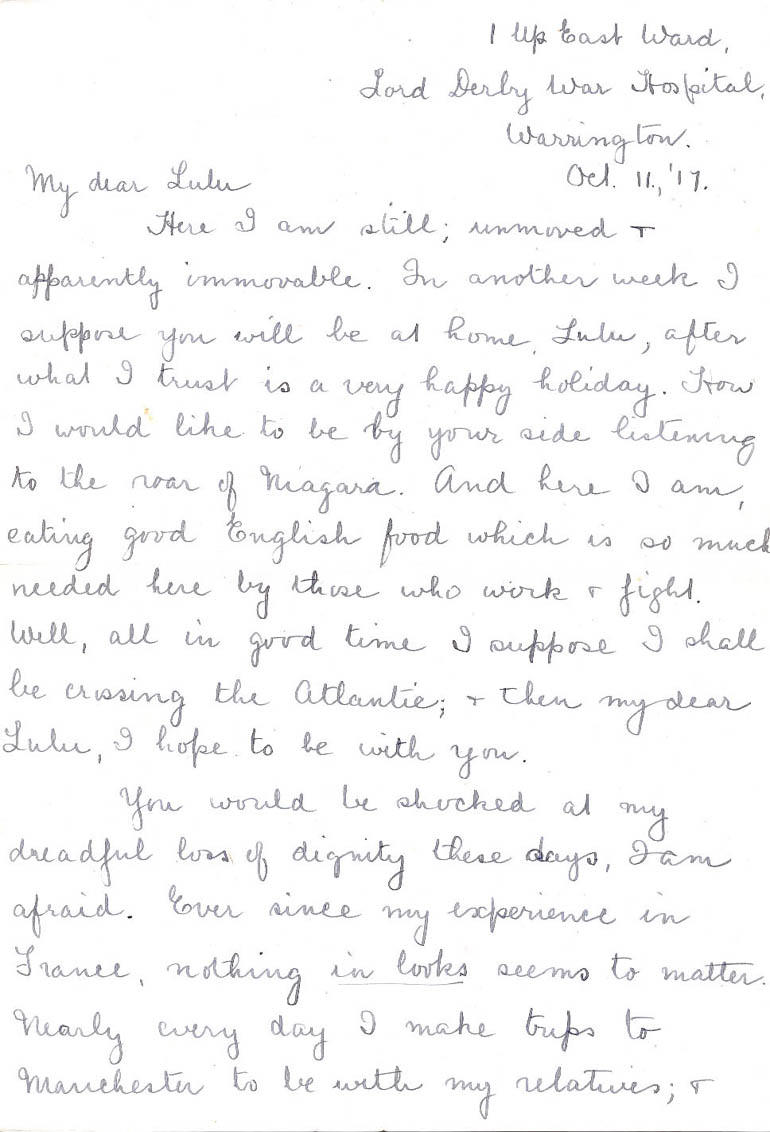 1 Up East Ward,
Lord Derby War Hospital,
Warrington.
Oct. 11, '17.
My dear Lulu
Here I am still; unmoved &
apparently immovable. In another week I
suppose you will be at home, Lulu, after
what I trust is a very happy holiday. How
I would like to be by your side listening
to the roar of Niagara. And here I am,
eating good English food which is so much
needed here by those who work & fight.
Well, all in good time I suppose I shall
be crossing the Atlantic; & then my dear
Lulu, I hope to be with you.
You would be shocked at my
dreadful loss of dignity these days, I am
afraid. Ever since my experience in
France, nothing in looks seems to matter.
Nearly every day I make trips to
Manchester to be with my relatives; &